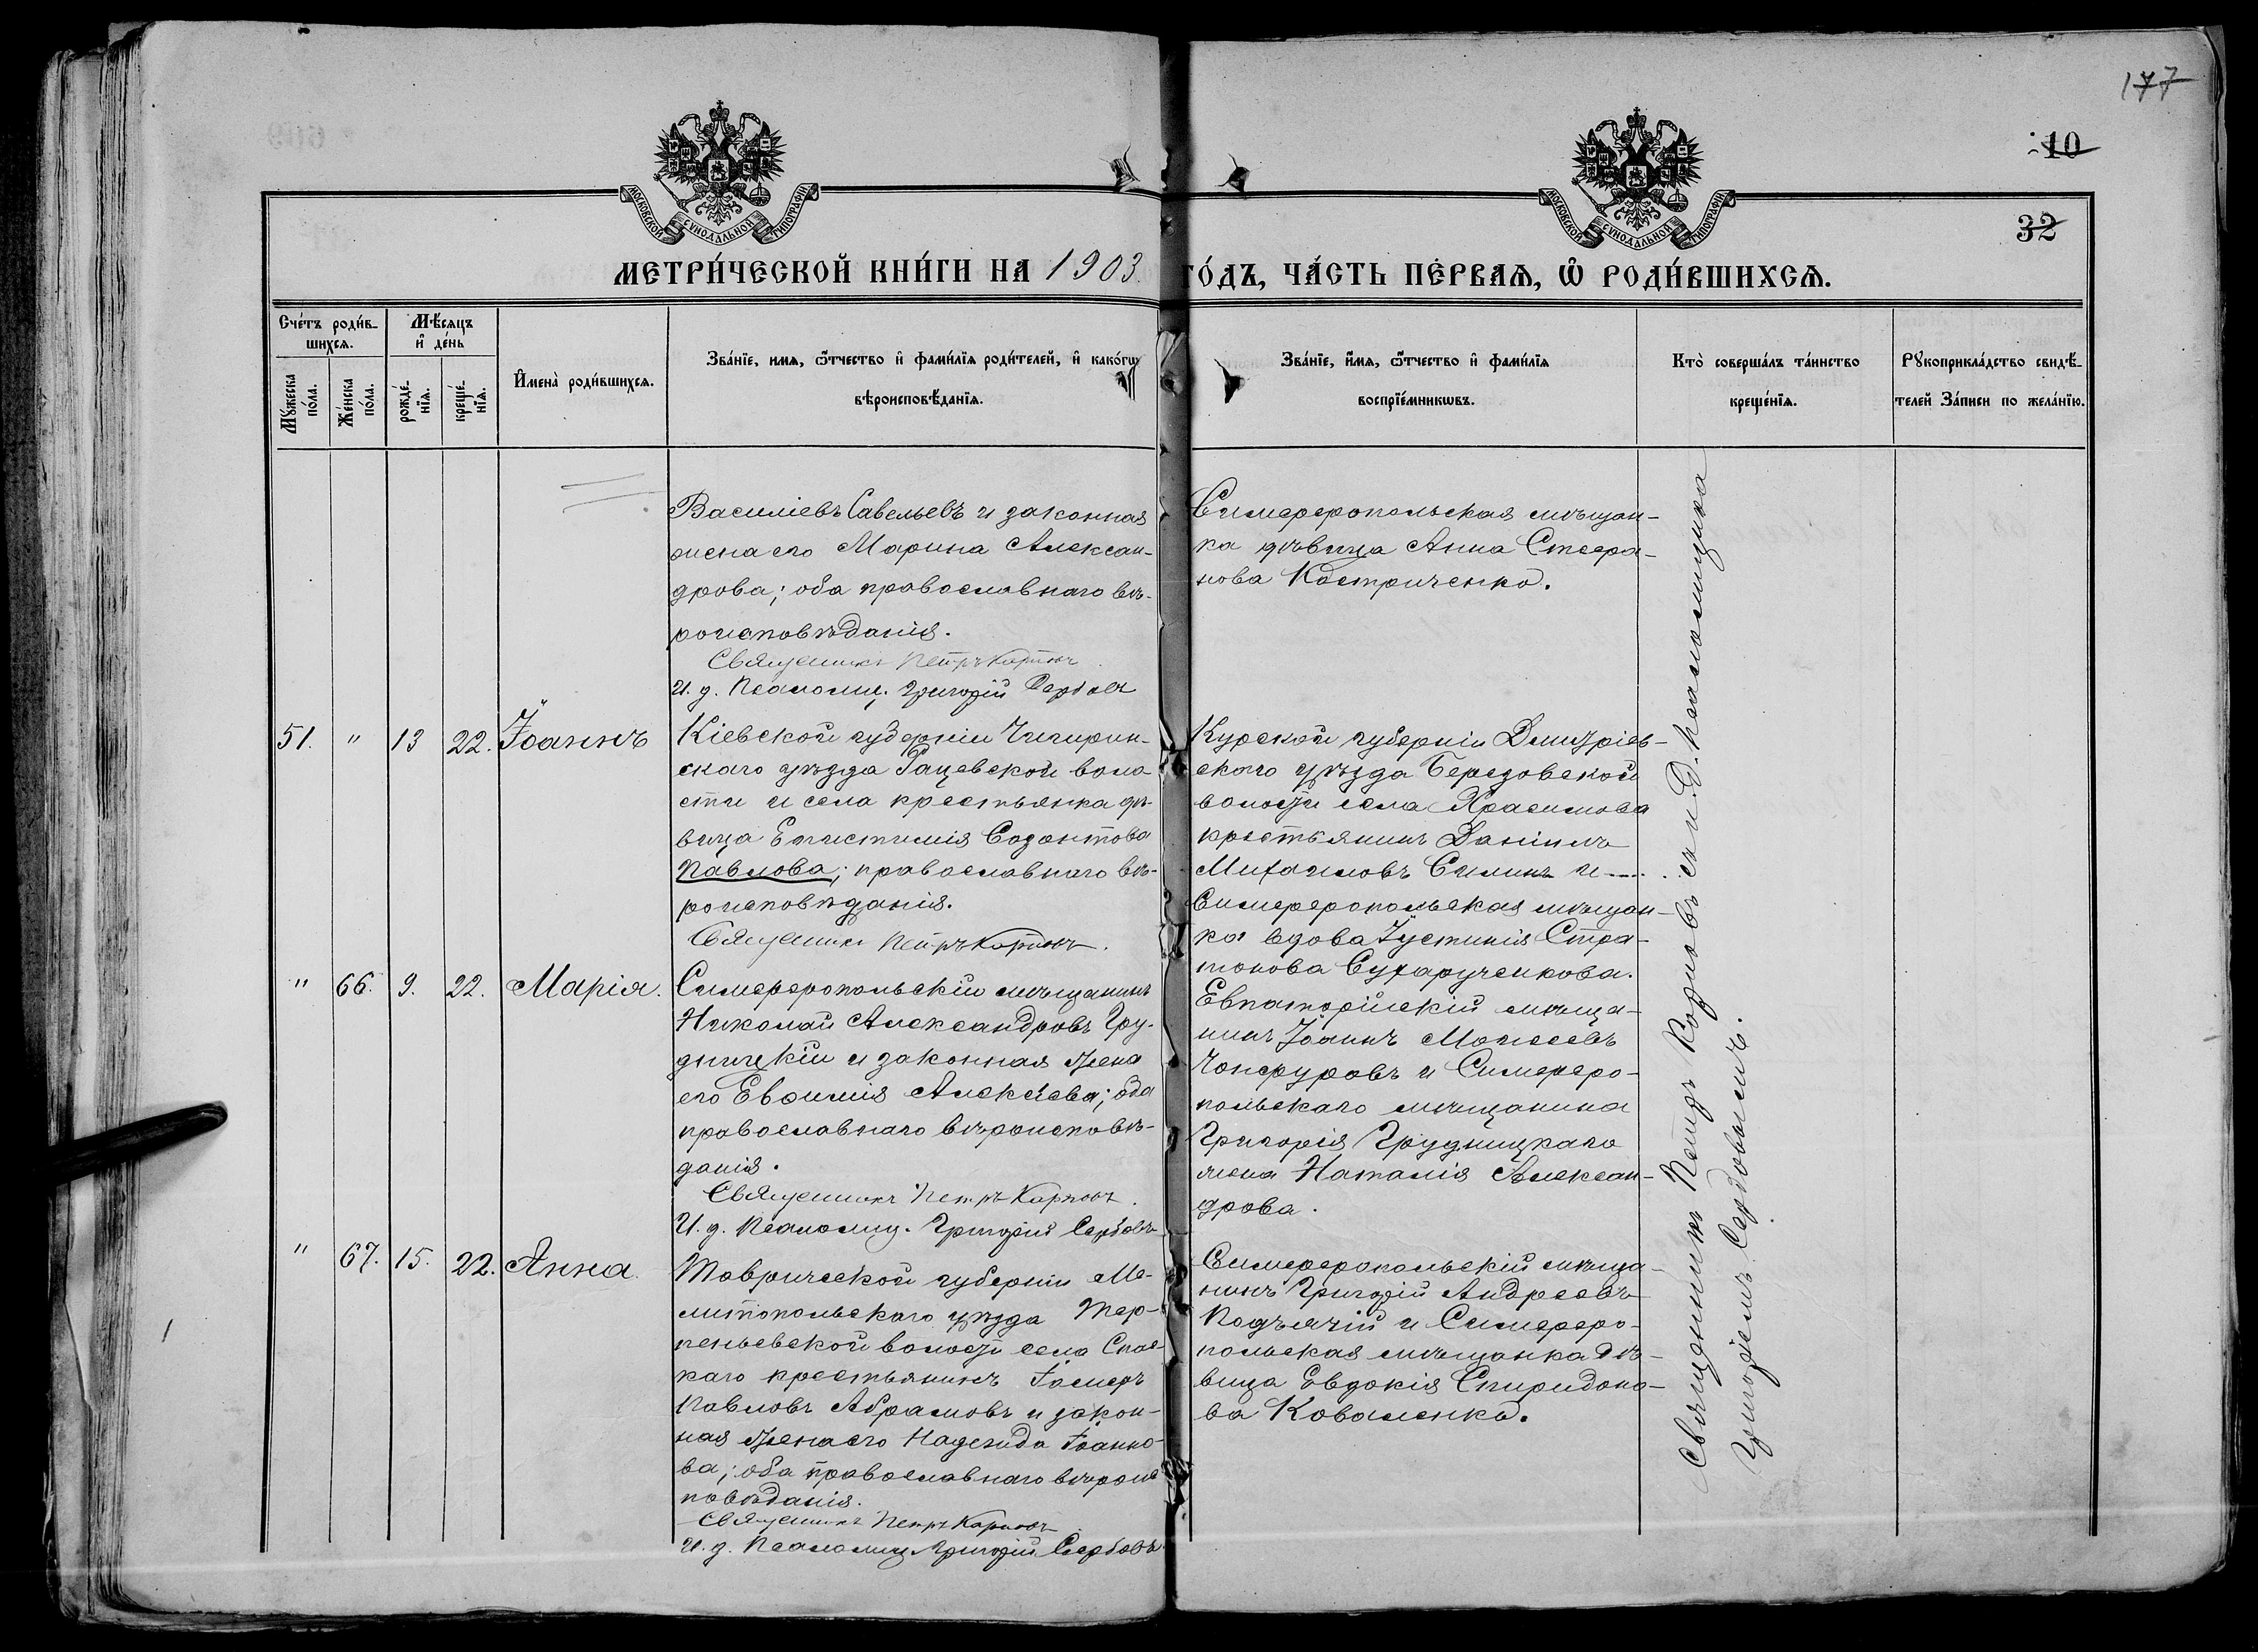 177
10
32
МОСКОВСКОЙ СѴНОДАЛЬНОЙ ТИПОГРАФІИ
МОСКОВСКОЙ СѴНОДАЛЬНОЙ ТИПОГРАФІИ
МЕТРИ́ЧЕСКОЙ КНИ́ГИ НА 1903. ГО́ДЪ, ЧА́СТЬ ПЕ́РВАѦ, Ѽ РОДИ́ВШИХСѦ.
Сче́тъ роди́в-
шихсѧ.
Мѣ́сѧцъ
и҆ де́нь
Мꙋ́жеска
по́ла.
Же́нска
по́ла.
рожде́-
нїѧ.
креще́-
нїѧ.
И҆мена̀ роди́вшихсѧ.
Зва́нїе, имѧ, ѻ҆́тчество и҆ фами́лїѧ роди́телей, и҆ како́гѡ
вѣроисповѣ́данїѧ.
Зва́нїе, и҆́мѧ, ѻ҆́тчество и҆ фами́лїѧ
воспрїе́мникѡвъ.
Кто̀ соверша́лъ та́инство
креще́нїѧ.
Рꙋкоприкла́дство свидѣ́-
телей За́писи по жела́нїю.
Василіевъ Савельевъ и законная
жена его Марина Алексан-
дрова; оба православнаго вѣ-
роисповѣданія.
Священникъ Петръ Карповъ.
И. д. Псаломщ. Григорій Сербовъ
Симферопольская мѣщан-
ка дѣвица Анна Стефа-
нова Костриченко.
51. " 13 22. Іоаннъ
Кіевской губерніи Чигирин-
скаго уѣзда Рацевской воло-
сти и села крестьянка дѣ-
вица Епистимія Созонтова
Павлова; православнаго вѣ-
роисповѣданія.
Священникъ Петръ Карповъ.
Курской губерніи Дмитріев-
скаго уѣзда Березовской
волости села
крестьянинъ Даніилъ
Михаиловъ Силинъ и
Симферопольская мѣщан-
ка вдова Іустинія Стра-
тонова Сухарученкова.
" 66. 9. 22. Марія.
Симферопольскій мѣщанинъ
Николай Александровъ Гру-
дницкій и законная жена
его Евѳимія Алексѣева; оба
православнаго вѣроисповѣ-
данія.
Священникъ Петръ Карповъ.
И. д. Псаломщ. Григорій Сербовъ
Евпаторійскій мѣща-
нинъ Іоаннъ Моисеевъ
Чонгуровъ и Симферо-
польскаго мѣщанина
Григорія Грудницкаго
жена Наталія Алексан-
дрова.
" 67. 15. 22. Анна.
Таврической губерніи Ме-
литопольскаго уѣзда Тер-
пеньевской волости села Спас-
каго крестьянинъ
Павловъ Абрамовъ и закон-
ная жена его Надежда Іоанно-
ва; оба православнаго вѣроис-
повѣданія.
Священникъ Петръ Карповъ.
И. д. Псаломщ. Григорій Сербовъ
Симферопольскій мѣща-
нинъ Григорій Андреевъ
Подъячій и Симферо-
польская мѣщанка дѣ-
вица Евдокія Спиридоно-
ва Коваленко.
Священникъ Петръ Карповъ съ и. д. псаломщика
Григоріемъ Сербовымъ.